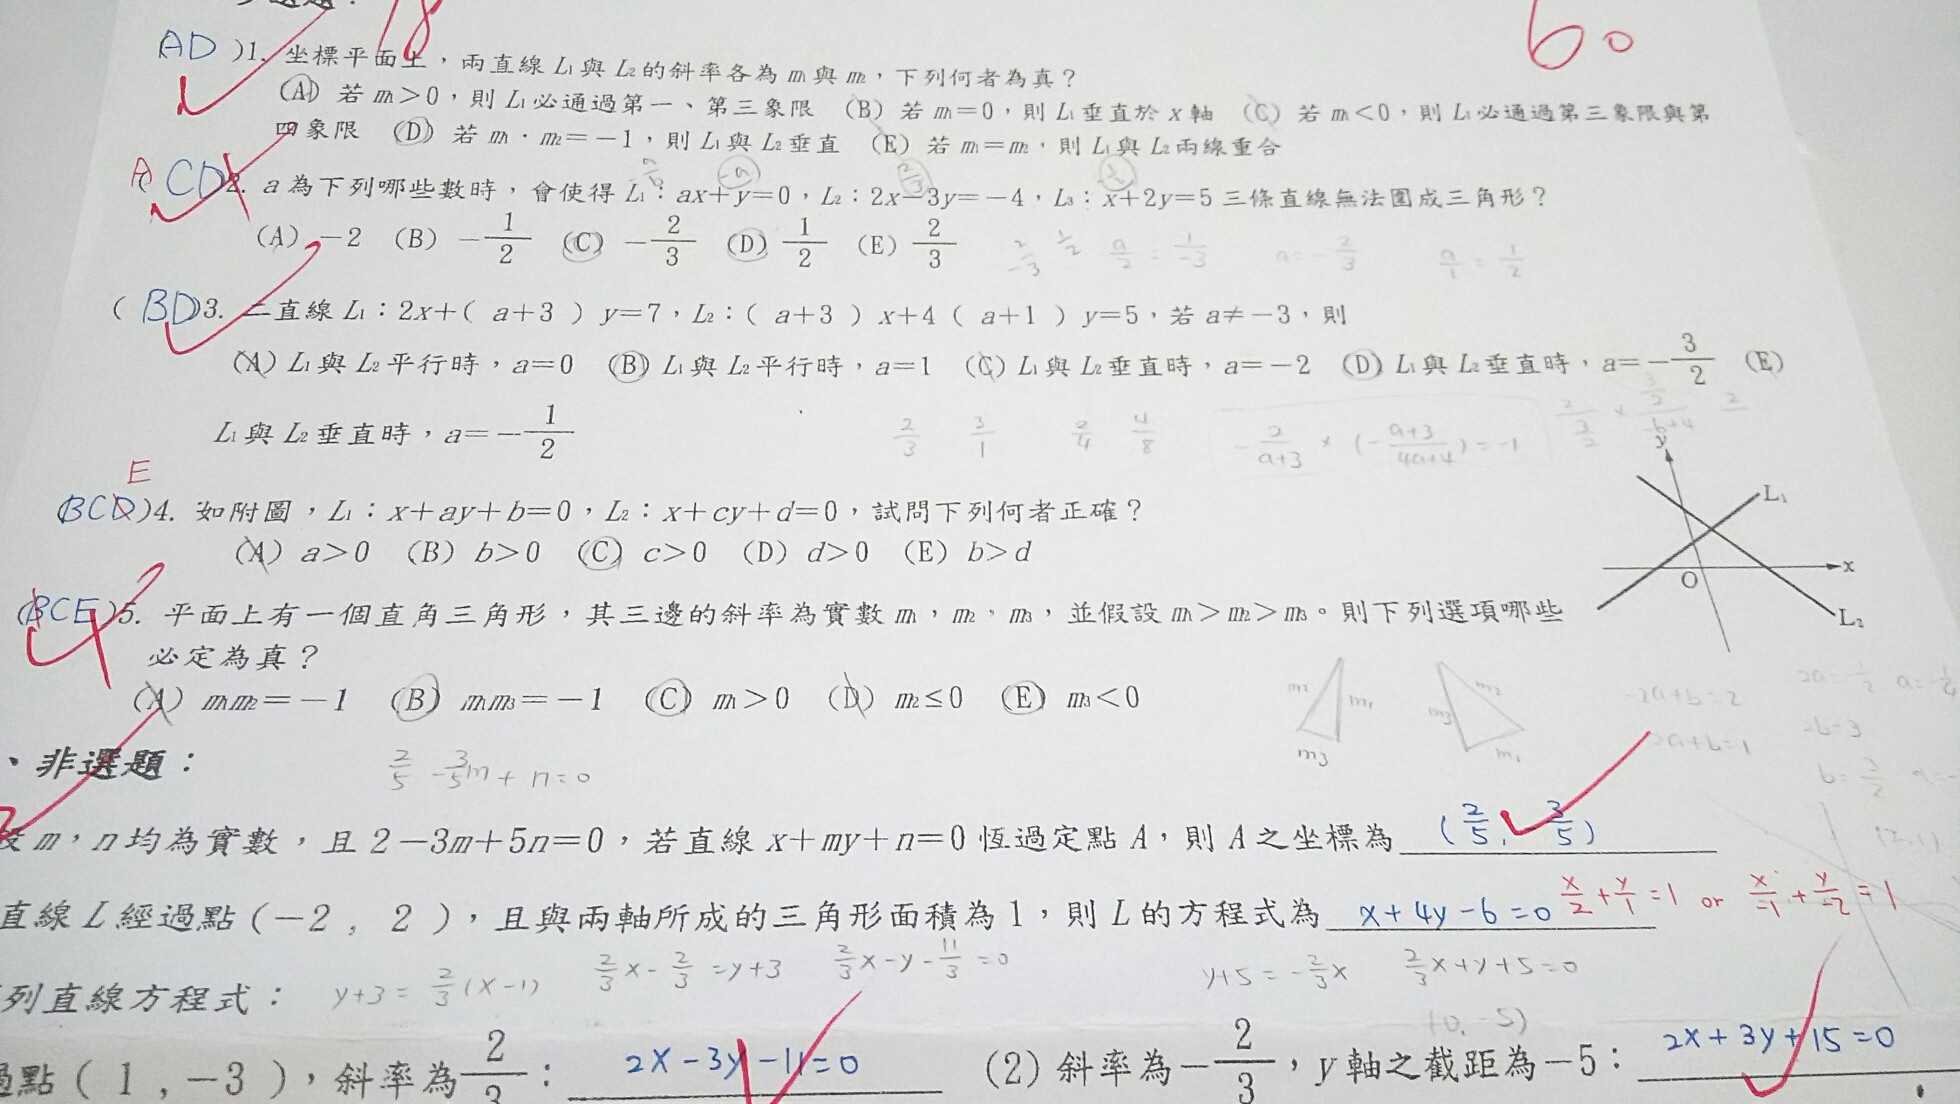 選題：
18
60
AD )1. 坐標平面上，兩直線 L₁ 與 L₂ 的斜率各為 m₁ 與 m₂，下列何者為真？
(A) 若 m₁＞0，則 L₁ 必通過第一、第三象限 (B) 若 m₁＝0，則 L₁ 垂直於 x 軸 (C) 若 m₁＜0，則 L₁ 必通過第三象限與第
四象限 (D) 若 m₁．m₂＝－1，則 L₁ 與 L₂ 垂直 (E) 若 m₁＝m₂，則 L₁ 與 L₂ 兩線重合
A CD 2. a 為下列哪些數時，會使得 L₁：ax＋y＝0，L₂：2x－3y＝－4，L₃：x＋2y＝5 三條直線無法圍成三角形？
(A) －2 (B) －1/2 (C) －2/3 (D) 1/2 (E) 2/3
2/-3 1/2 a/2 = 1/-3 a=-2/3 a/1 = 1/2
( BD )3. 二直線 L₁：2x＋( a＋3 ) y＝7，L₂：( a＋3 ) x＋4 ( a＋1 ) y＝5，若 a≠－3，則
(A) L₁ 與 L₂ 平行時，a＝0 (B) L₁ 與 L₂ 平行時，a＝1 (C) L₁ 與 L₂ 垂直時，a＝－2 (D) L₁ 與 L₂ 垂直時，a＝－3/2 (E)
L₁ 與 L₂ 垂直時，a＝－1/2
2/3 3/1 2/4 4/8 -2/a+3 × (-a+3/4a+4) = -1
E
(BCD )4. 如附圖，L₁：x＋ay＋b＝0，L₂：x＋cy＋d＝0，試問下列何者正確？
(A) a＞0 (B) b＞0 (C) c＞0 (D) d＞0 (E) b＞d
y
L₁
x
O
L₂
(BCE )5. 平面上有一個直角三角形，其三邊的斜率為實數 m₁，m₂，m₃，並假設 m₁＞m₂＞m₃。則下列選項哪些
必定為真？
(A) m₁m₂＝－1 (B) m₁m₃＝－1 (C) m₁＞0 (D) m₂≤0 (E) m₃＜0
m₂ m₁ m₃
m₂ m₃ m₁
-2a+b=2
2a+b=1
2b=3
、非選題：
2/5 - 3/5m + n = 0
設 m，n 均為實數，且 2－3m＋5n＝0，若直線 x＋my＋n＝0 恆過定點 A，則 A 之坐標為 (2/5, -3/5)
(2,1)
直線 L 經過點 (－2，2 )，且與兩軸所成的三角形面積為 1，則 L 的方程式為 x+4y-6=0 x/2+y/1=1 or x/-1+y/-2=1
列直線方程式： y+3=2/3(x-1) 2/3x-2/3=y+3 2/3x-y-11/3=0 y+5=-2/3x 2/3x+y+5=0
(0,-5)
過點 ( 1，－3 )，斜率為 2/3： 2x-3y-11=0 (2) 斜率為－2/3，y 軸之截距為－5： 2x+3y+15=0